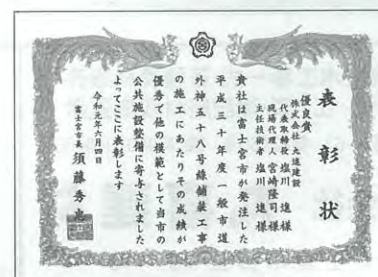 表彰状
優良賞
株式会社 大進建設
代表取締役 塩川 進様
現場代理人 宮崎隆司様
主任技術者 塩川 進様
貴社は富士宮市が発注した
平成三十年度一般市道
外神五十八号線舗装工事
の施工にあたりその成績が
優秀で他の模範として当市の
公共施設整備に寄与されました
よってここに表彰します
令和元年六月四日
富士宮市長 須藤秀忠